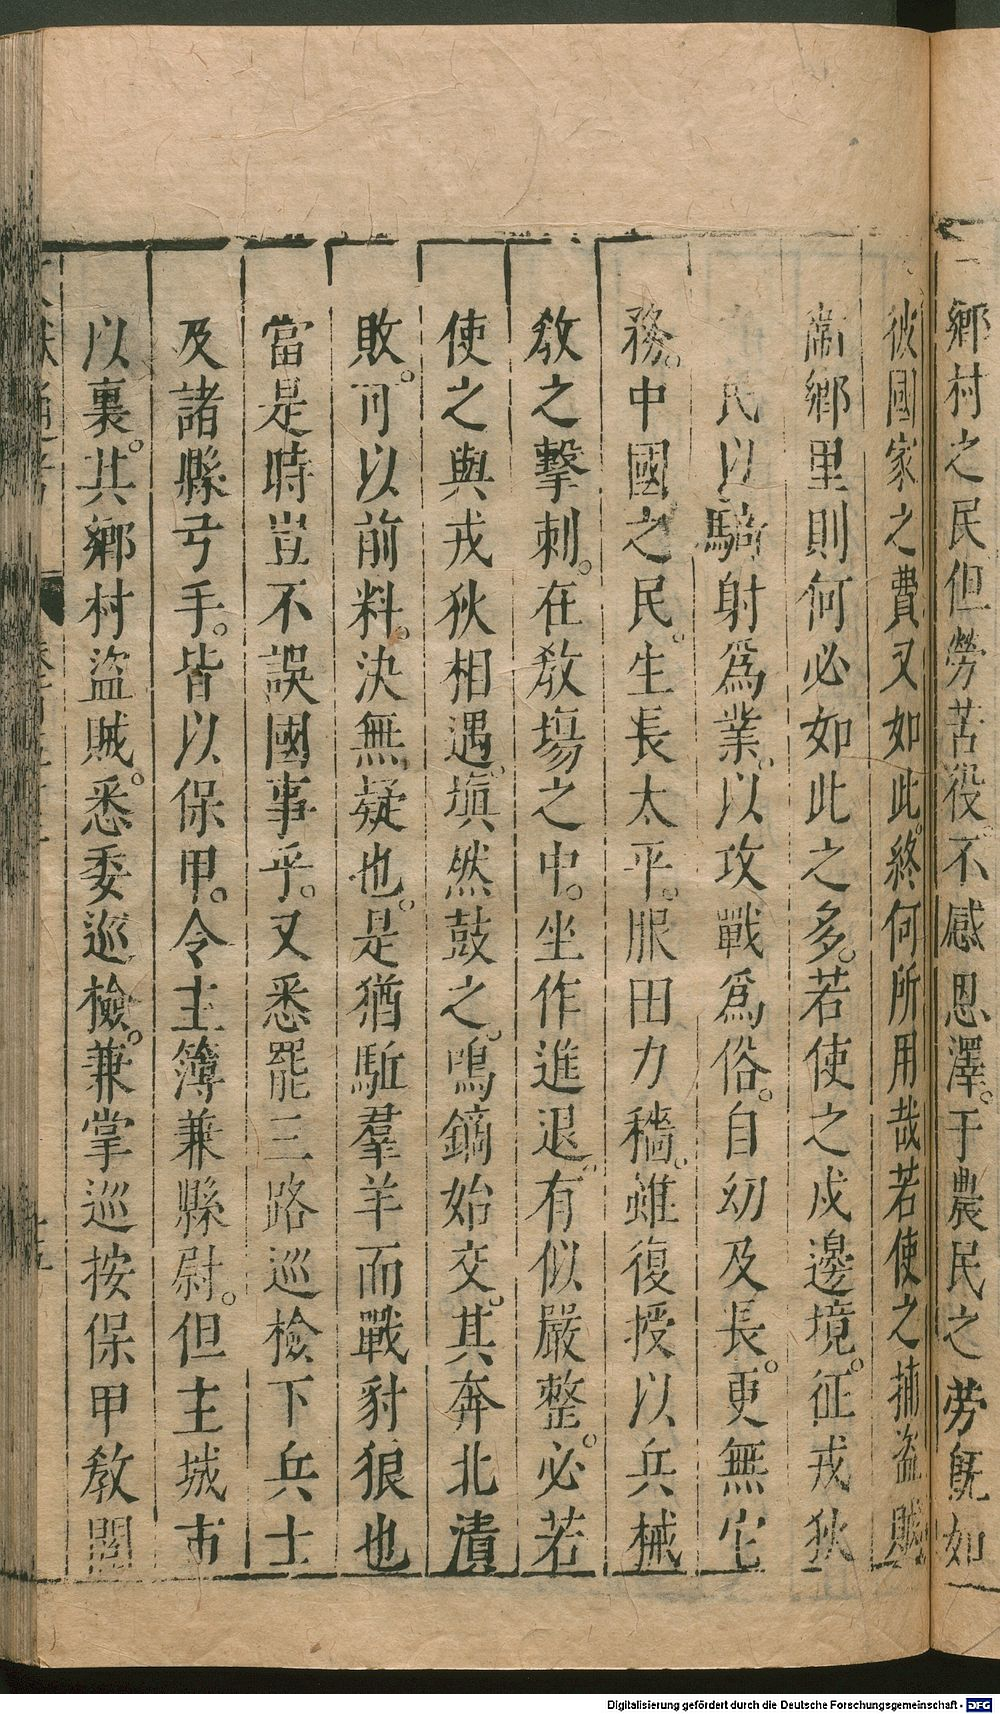 鄉村之民但勞苦役不感恩澤。于農民之勞旣如
彼國家之費又如此。終何所用哉若使之捕盜賊
衛鄉里則何必如此之多。若使之戍邊境。征戎狄
民以騎射爲業。以攻戰爲俗。自幼及長。更無它
務。中國之民。生長太平。服田力穡。雖復授以兵械
教之擊刺。在教塲之中。坐作進退。有似嚴整。必若
使之與戎狄相遇。塡然鼓之。鳴鏑始交。其奔北潰
敗。可以前料。決無疑也。是猶驅羣羊而戰豺狼也
當是時豈不誤國事乎。又悉罷三路巡檢下兵士
及諸縣弓手。皆以保甲。令主簿兼縣尉。但主城市
以裏。其鄉村盜賊。悉委巡檢。兼掌巡按保甲教閱
Digitalisierung gefördert durch die Deutsche Forschungsgemeinschaft - DFG